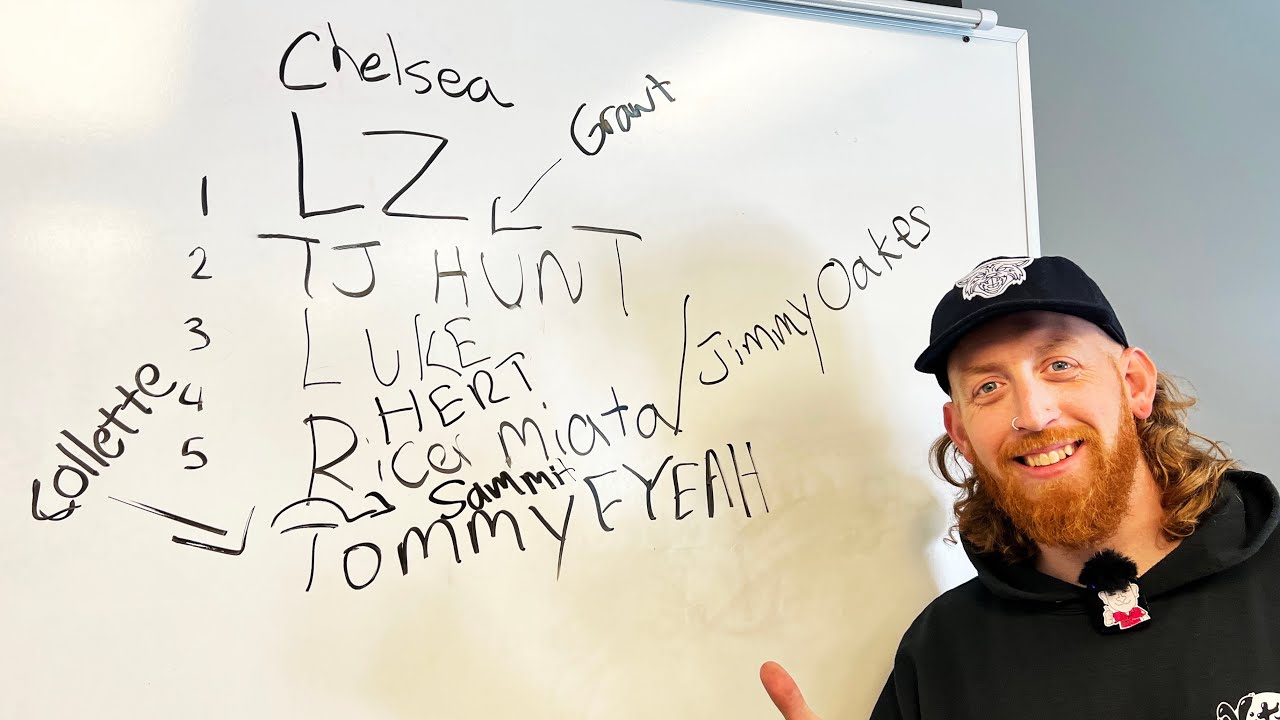 Chelsea
Grant
1 LZ
2 TJ HUNT
3 LUKE
HERT
4 Ricer Miata / Jimmy Oakes
Collette
5 Sammit
Tommy FYEAH